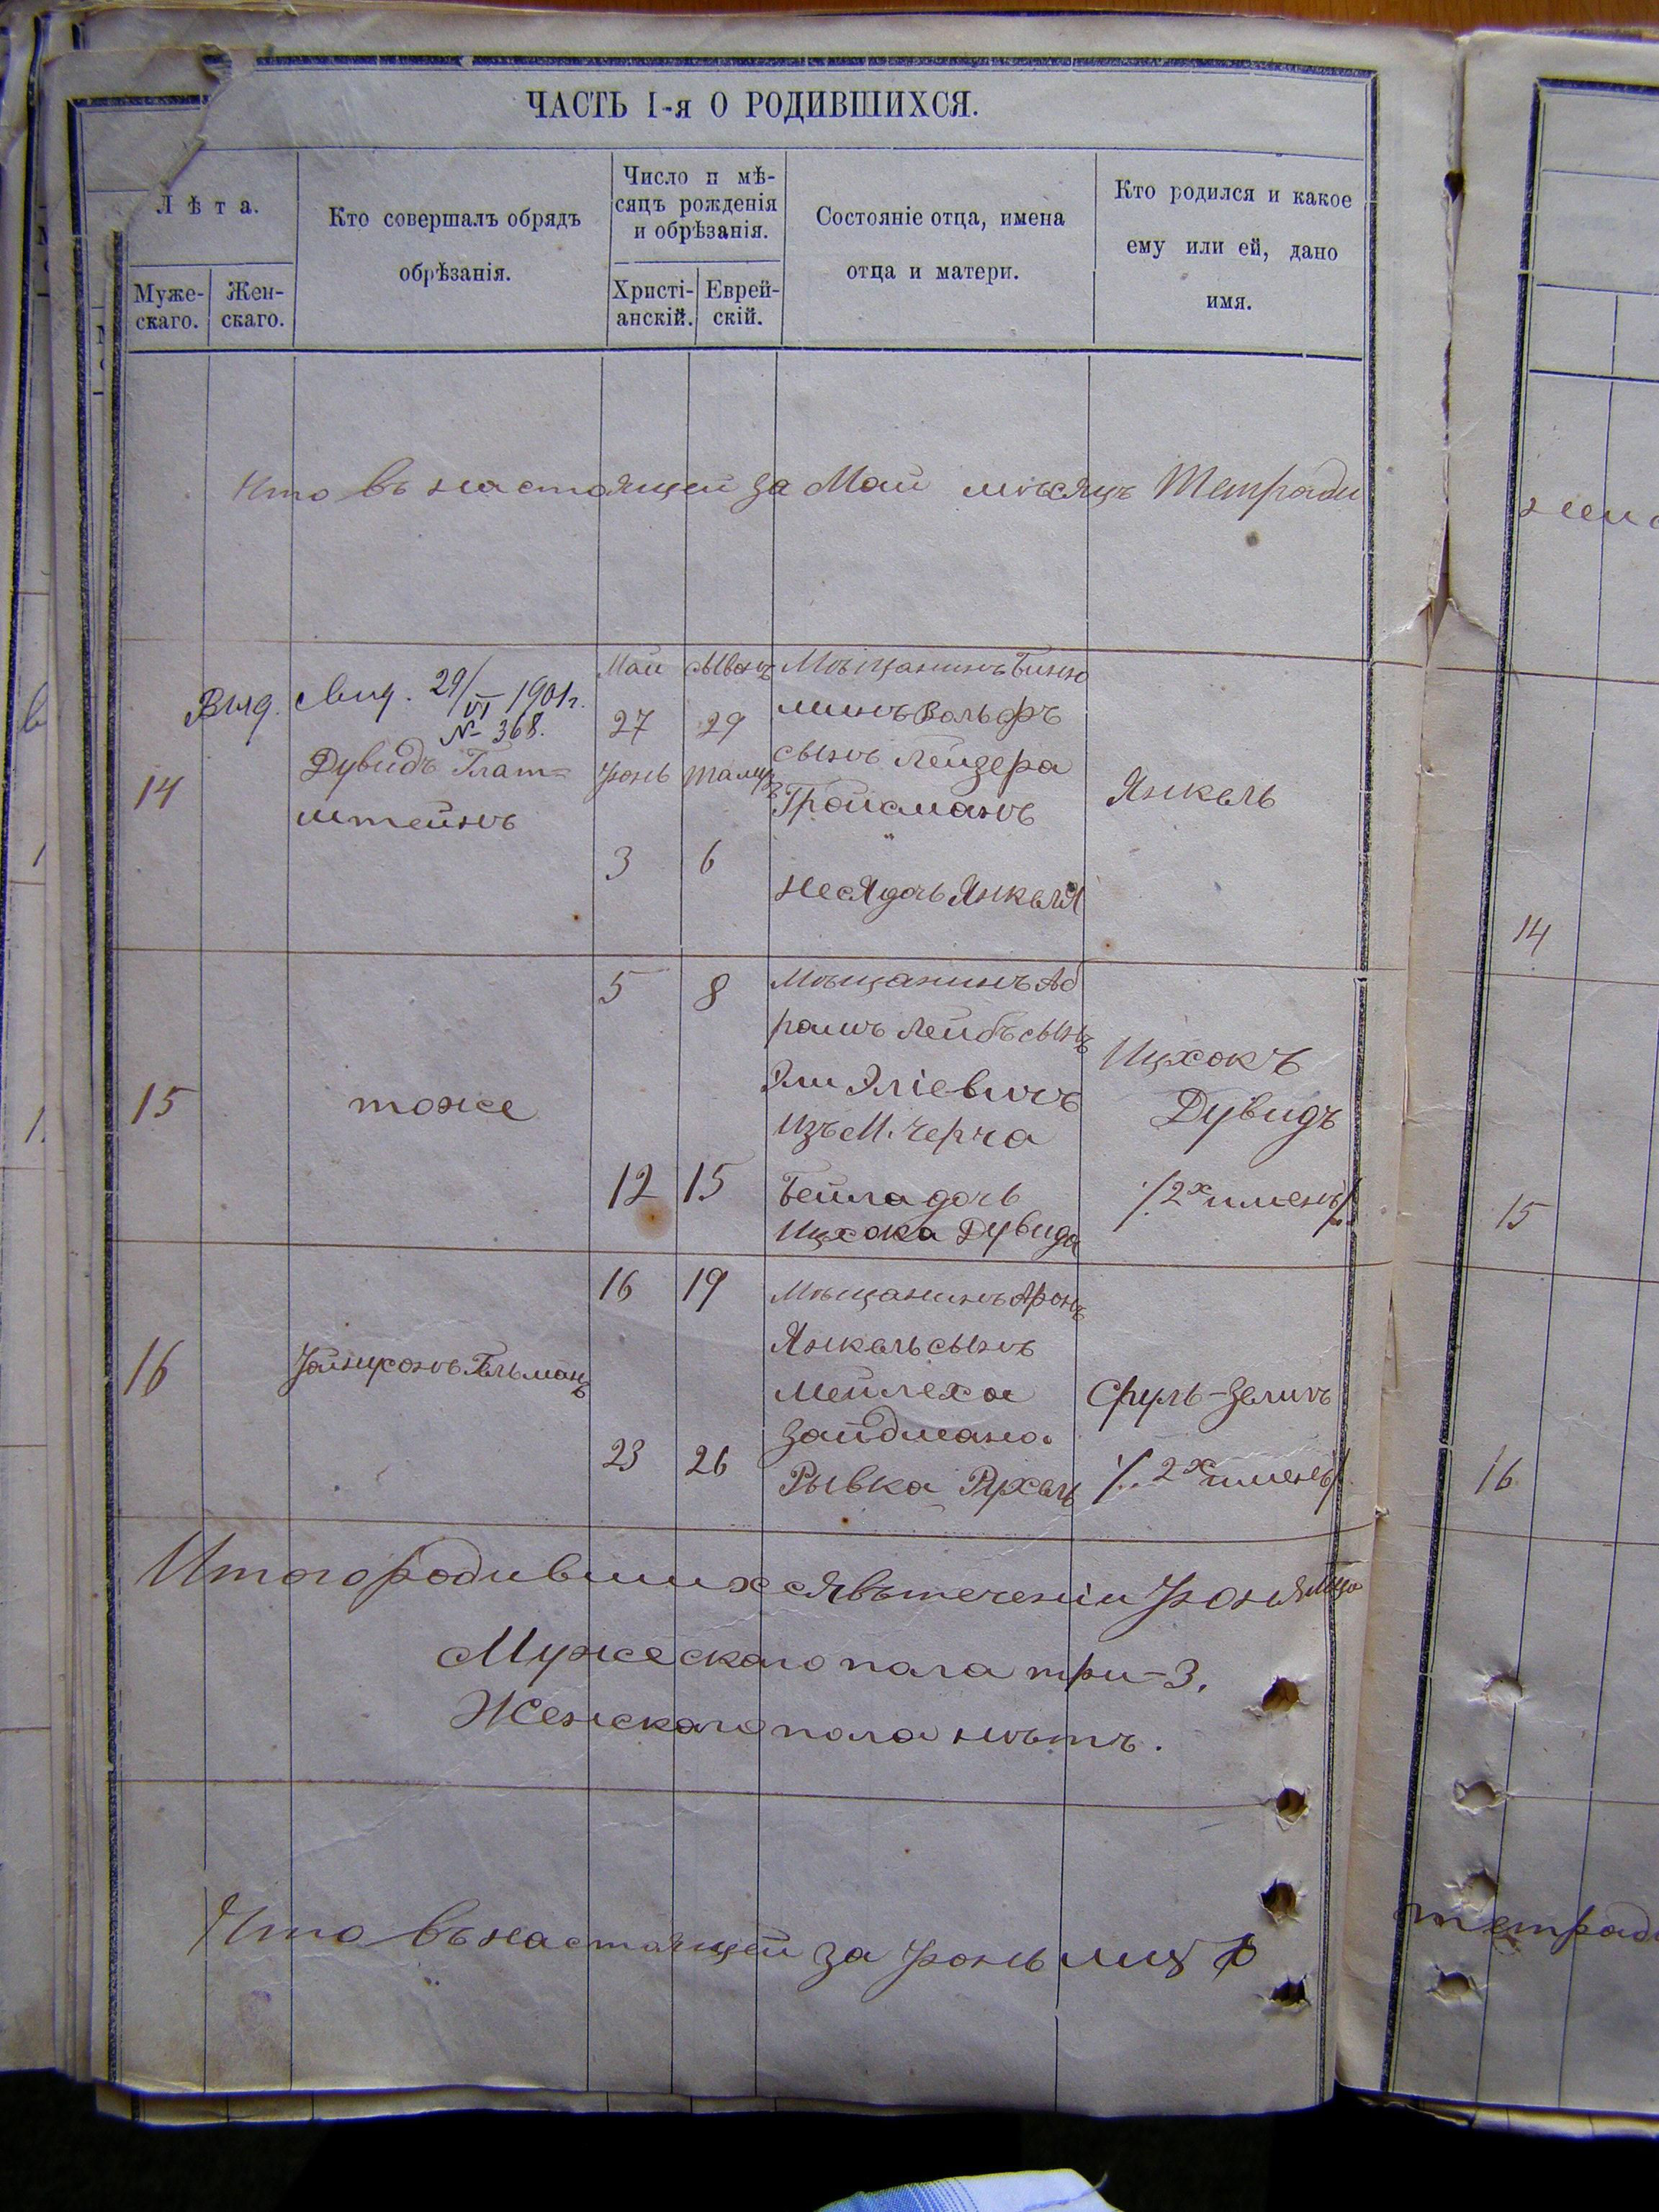 ЧАСТЬ I-я О РОДИВШИХСЯ.
Лѣта.
Муже-
скаго.
Жен-
скаго.
Кто совершалъ обрядъ
обрѣзанія.
Число и мѣ-
сяцъ рожденія
и обрѣзанія.
Христі-
анскій.
Еврей-
скій.
Состояніе отца, имена
отца и матери.
Кто родился и какое
ему или ей, дано
имя.
Что въ настоящей за Май мѣсяцъ Тетради
14
Выд. свид. 29/VI 1901 г.
№ 368.
Дувидъ Глат=
штейнъ
Май
27
Іюнь
3
Сывонъ
29
Тамузъ
6
Мѣщанинъ Биню
минъ Вольфъ
сынъ Лейзера
Гройсманъ
Неся дочь Янкеля
Янкель
15
тоже
5
12
8
15
Мѣщанинъ Аб
рамъ Лейбъ сынъ
Эли Эліевичъ
изъ М. Черча
Бейла дочь
Ицхока Дувида
Ицхокъ
Дувидъ
/2х именъ/
16
Гельманъ
16
23
19
26
Мѣщанинъ Аронъ
Янкель сынъ
Мейлеха
Зайдмана
Рывка Рухель
Сруль-Зелигъ
/2х именъ/
Итого родившихся въ теченіи Іюня Мца
Мужескаго пола три-3.
Женскаго пола нѣтъ.
Что въ настоящей за Іюнь мцъ
14
15
16
тетрад